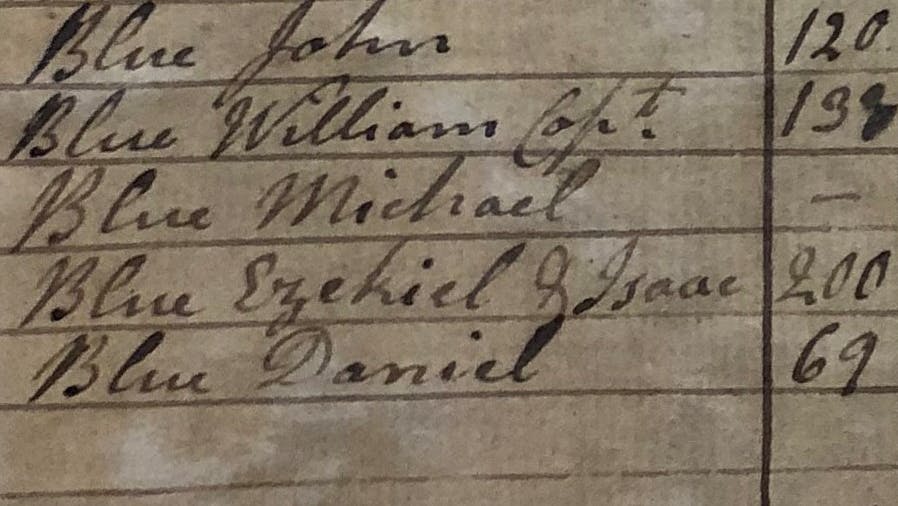 Blue John 120
Blue William Capt. 138
Blue Michael —
Blue Ezekiel & Isaac 200
Blue Daniel 69